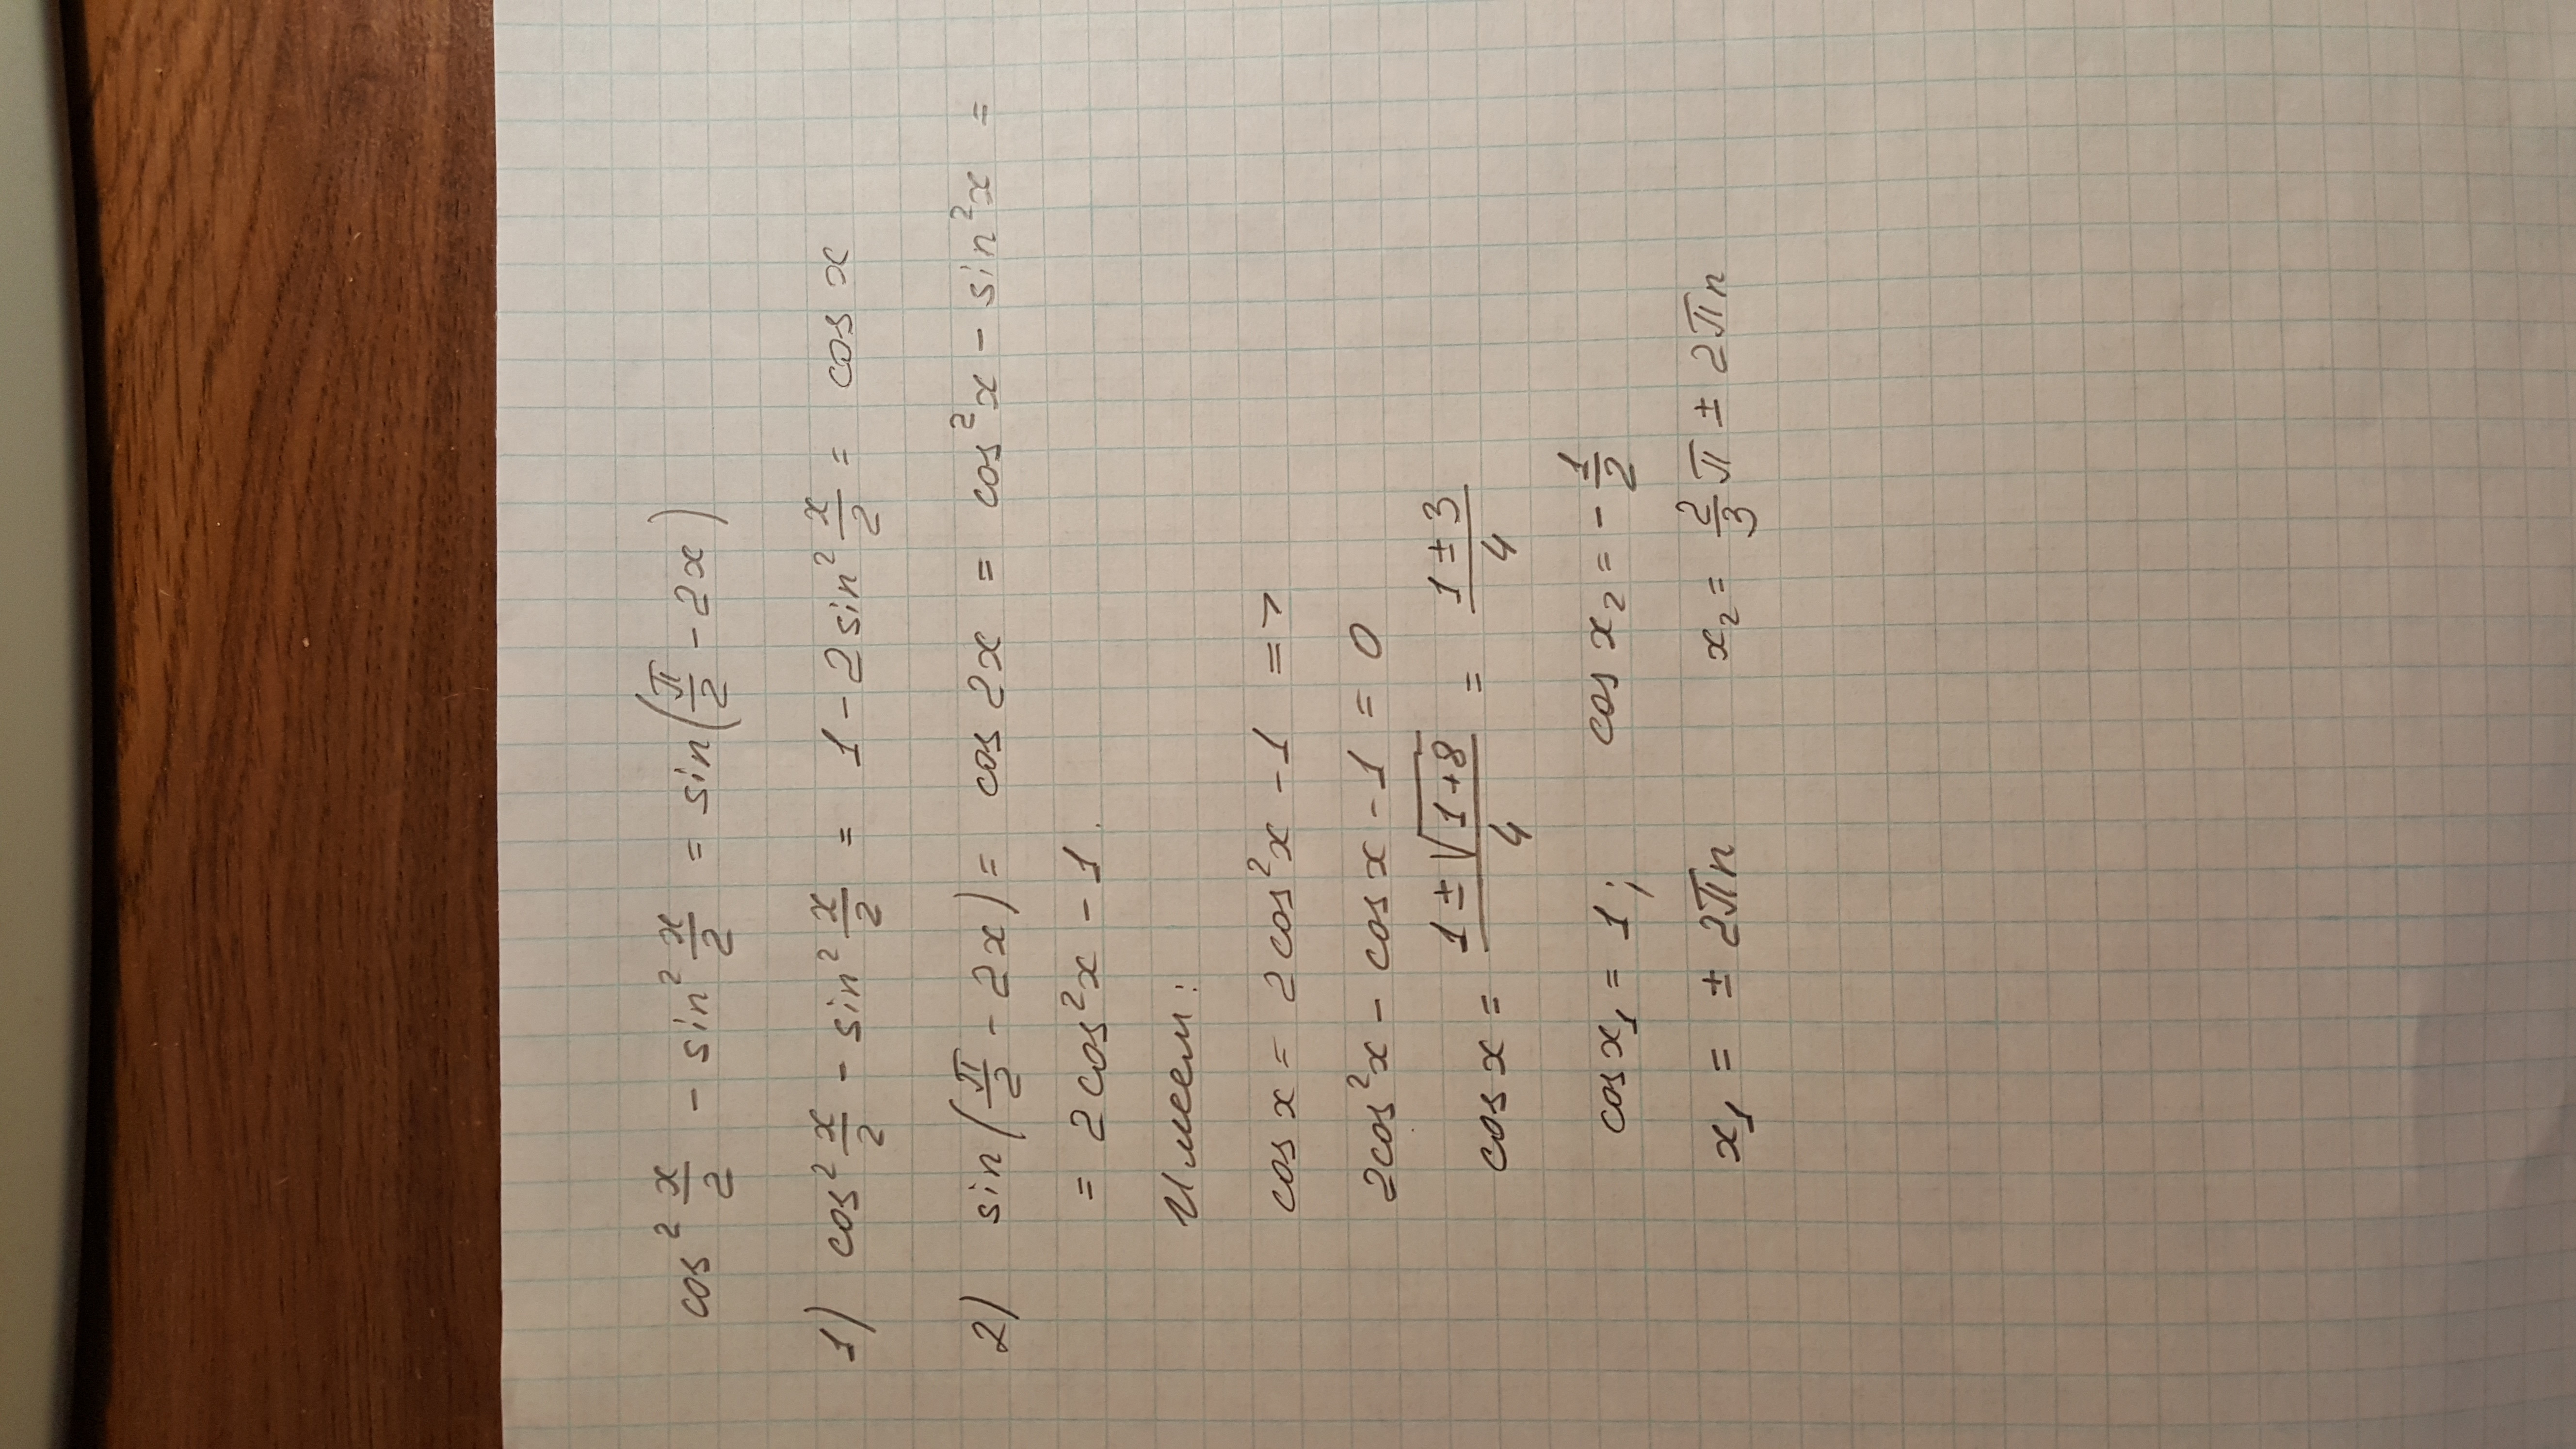 cos² x/2 - sin² x/2 = sin(π/2 - 2x)
1) cos² x/2 - sin² x/2 = 1 - 2 sin² x/2 = cos x
2) sin(π/2 - 2x) = cos 2x = cos²x - sin²x =
= 2cos²x - 1.
Имеем:
cos x = 2cos²x - 1 =>
2cos²x - cos x - 1 = 0
cos x = (1 ± √(1+8))/4 = (1 ± 3)/4
cos x₁ = 1; cos x₂ = - 1/2
x₁ = ± 2πn x₂ = 2/3 π ± 2πn